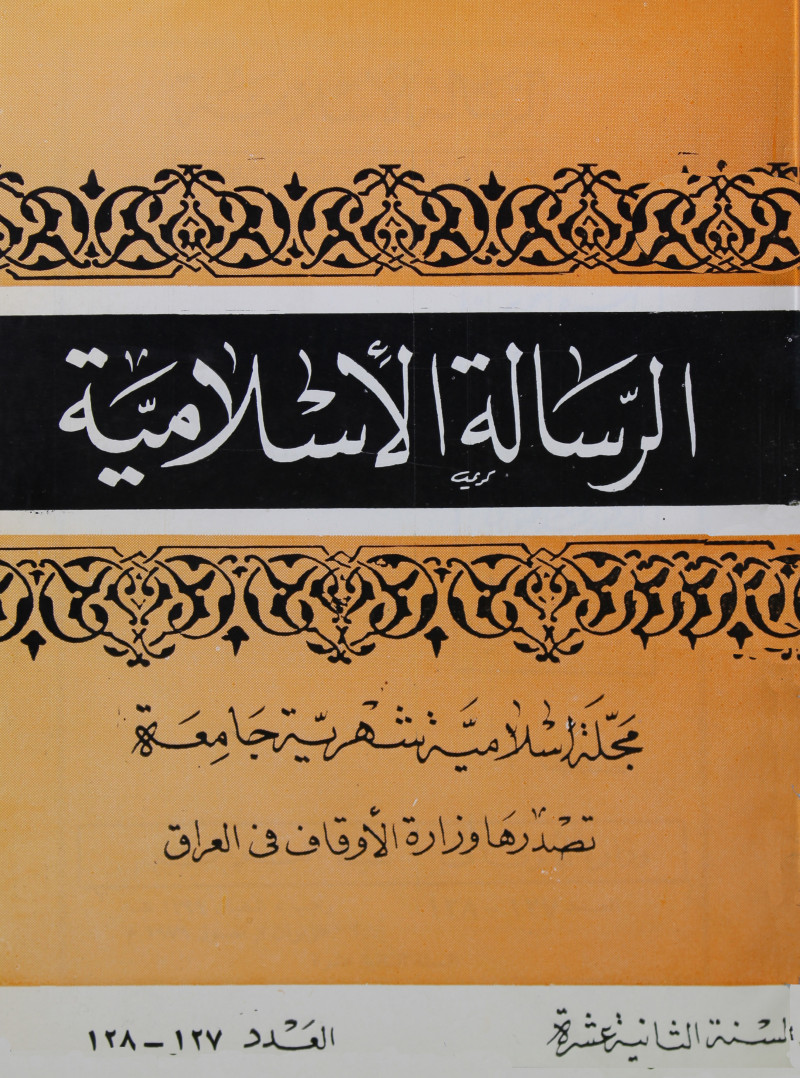 الرسالة الإسلامية
كريم
مجلة إسلامية شهرية جامعة
تصدرها وزارة الأوقاف فى العراق
السنة الثانية عشرة
العدد ١٢٧ - ١٢٨